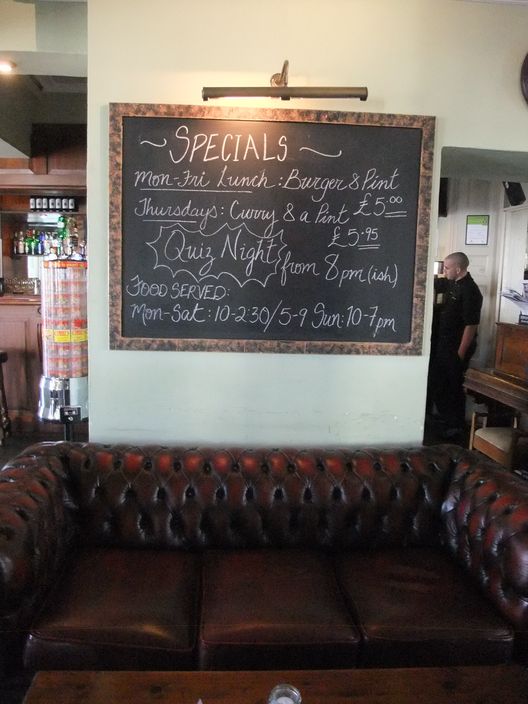 ~ SPECIALS ~
Mon-Fri Lunch : Burger & Pint £5.00
Thursdays: Curry & a Pint £5.95
Quiz Night from 8pm (ish)
FOOD SERVED:
Mon-Sat: 10-2:30/5-9 Sun: 10-7pm